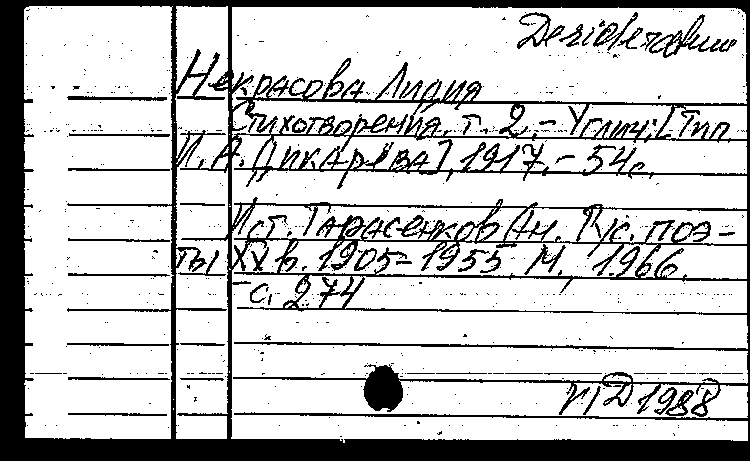 Desideratum
Некрасова Лидия
Стихотворения. т. 2. - Углич: [Тип.
И. А. Дикарева], 1917. - 54с.
Ист. Тарасенков Ан. Рус. поэ-
ты XX в. 1905-1955. М., 1966.
- с. 274
VID 1988